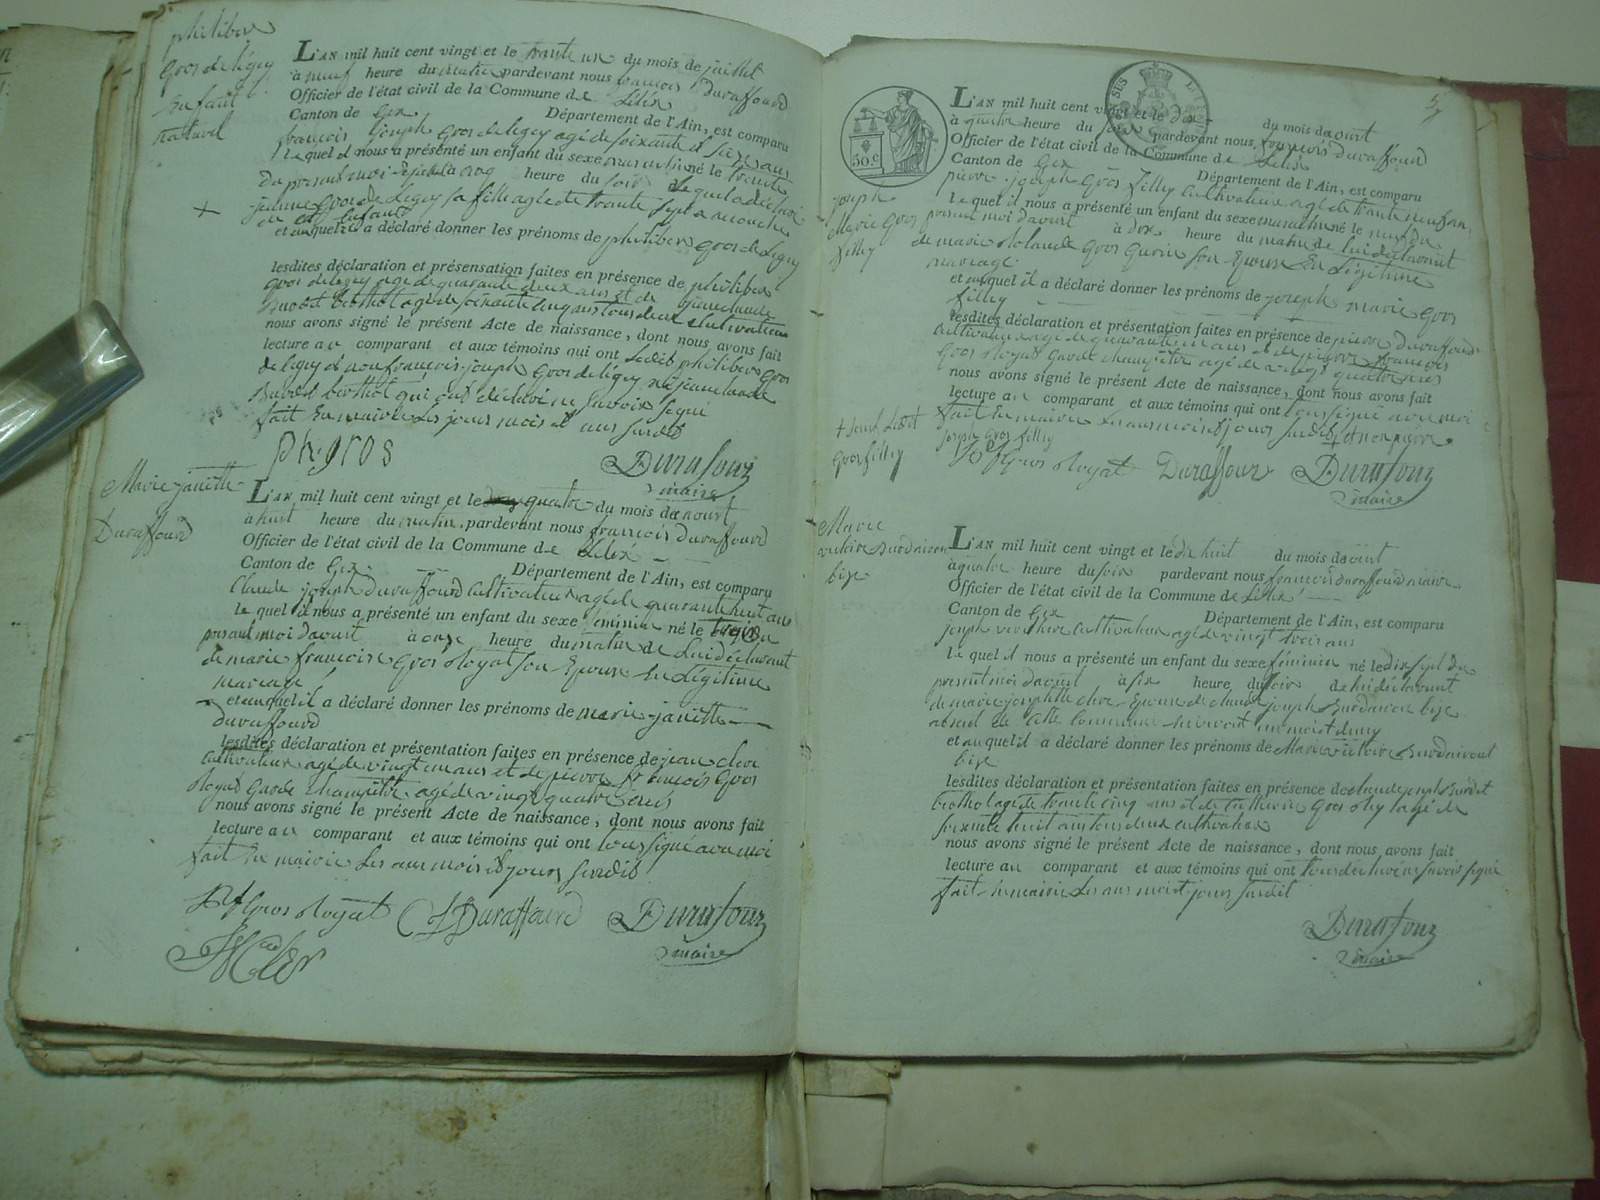 philiber
Gros de légny
Enfant
naturel
L'AN mil huit cent vingt et le trante un du mois de juillet
à neuf heure du matin pardevant nous francois Duraffourd
Officier de l'état civil de la Commune de Lélex
Canton de Gex Département de l'Ain, est comparu
francois joseph Gros de légny agé de soixante et seize ans
Le quel il nous a présenté un enfant du sexe masculin né le trante
Du present moi de juillet à cinq heure du soir
jeanne Gros de Legny sa fille agé de trante sept
et auquel il a déclaré donner les prénoms de philiber Gros de Legny
lesdites déclaration et présensation faites en présence de philiber
Gros de legny agé de quarante deux ans et de jeanclaude
agé de soixante cinq ans tous deux cultivateurs
nous avons signé le présent Acte de naissance, dont nous avons fait
lecture au comparant et aux témoins qui ont Ledit philiber Gros
de legny et non francois joseph Gros de légny ni jeanclaude
berthot qui ont déclaré ne savoir signé
fait En mairie les jours mois et ans susdit
ph. gros Durafour
maire
Marie janette
Duraffourd
L'AN mil huit cent vingt et le quatre du mois de aout
à huit heure du matin pardevant nous francois Duraffourd
Officier de l'état civil de la Commune de Lélex
Canton de Gex Département de l'Ain, est comparu
Claude joseph Duraffourd Cultivateur agé de quarante huit ans
Le quel il nous a présenté un enfant du sexe féminin né le trois du
présent moi daout à onze heure du matin de Lui déclarant
de marie francoise Gros Royat son Epouse En Légitime
mariage
et auquel il a déclaré donner les prénoms de marie janette
duraffourd
lesdites déclaration et présentation faites en présence de jean cler
Cultivateur agé de vingt un ans et de pierre francois Gros
Royat Garde champètre agé de vingt quatre ans
nous avons signé le présent Acte de naissance, dont nous avons fait
lecture au comparant et aux témoins qui ont tous signé avec moi
fait En mairie Les ans mois et jours susdit
Gros Royat CJ Duraffourd Durafour
maire
5
SUS
50.c
joseph
Marie Gros
fillex
L'AN mil huit cent vingt et le dix du mois daout
à quatre heure du soir pardevant nous francois duraffourd
Officier de l'état civil de la Commune de Lélex
Canton de Gex Département de l'Ain, est comparu
pierre joseph Gros fillex Cultivateur agé de trante neuf ans
Le quel il nous a présenté un enfant du sexe masculin né le neuf du
présent moi daout à dix heure du matin de lui déclarant
de marie Rolande Gros Gurin son Epouse En Légitime
mariage
et auquel il a déclaré donner les prénoms de joseph marie Gros
fillex
lesdites déclaration et présentation faites en présence de pierre duraffourd
Cultivateur agé de quarante un ans et de pierre francois
Gros Royat Garde champètre agé de vingt quatre ans
nous avons signé le présent Acte de naissance, dont nous avons fait
lecture au comparant et aux témoins qui ont tous signé avec moi
fait En mairie Les ans mois et jours susdit et non pierre
joseph Gros fillex
Gros Royat Duraffour Durafour
maire
Ledit
Gros fillex
Marie
victoire Burdairon
bize
L'AN mil huit cent vingt et le dix huit du mois daout
à quatre heure du soir pardevant nous francois duraffourd maire
Officier de l'état civil de la Commune de Lélex
Canton de Gex Département de l'Ain, est comparu
joseph Cultivateur agé de vingt trois ans
Le quel il nous a présenté un enfant du sexe féminin né le dix sept du
présent moi daout à six heure du soir de lui déclarant
de marie josephtte cler Epouse de claude joseph Burdairon bize
absent de cette Commune
et auquel il a déclaré donner les prénoms de Marie victoire Burdairon
bize
lesdites déclaration et présentation faites en présence de claude joseph
berthot agé de trante cinq ans et de Gros agé de
soixante huit ans tous deux cultivateur
nous avons signé le présent Acte de naissance, dont nous avons fait
lecture au comparant et aux témoins qui ont tous déclaré ne savoir signé
fait En mairie Les ans mois et jours susdit
Durafour
maire